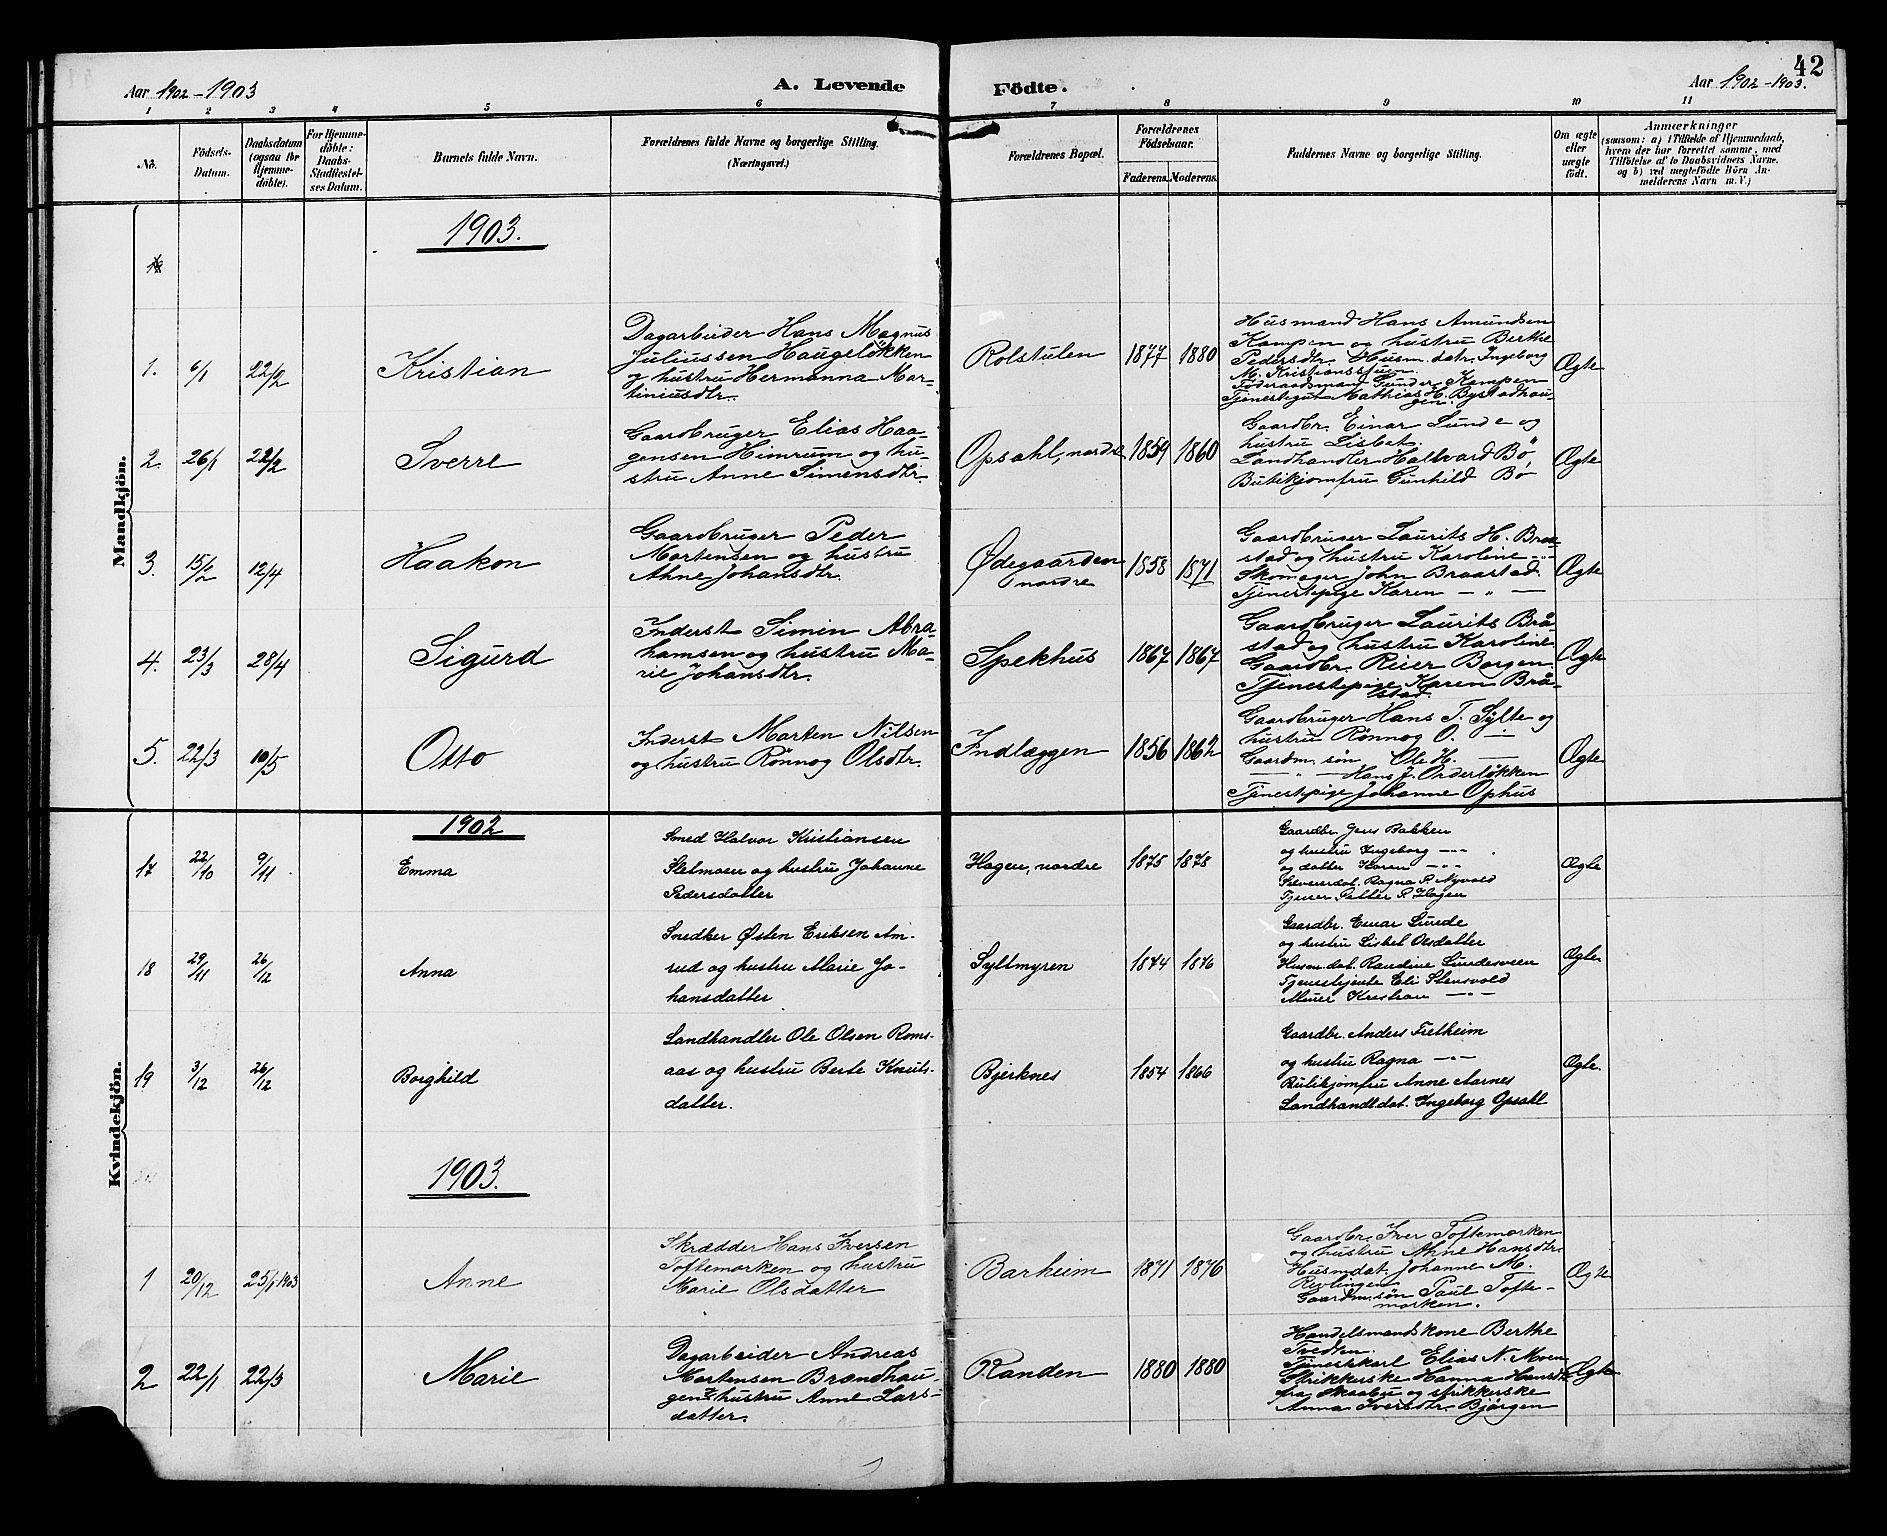 42
Aar 1902-1903
A. Levende Födte.
Aar 1902-1903.
1 2 3 4 5 6 7 8 9 10 11
No.
Födsels-
Datum.
Daabsdatum
(ogsaa for
Hjemme-
döbte).
For Hjemme-
döbte:
Daabs-
Stadfæstel-
ses Datum.
Barnets fulde Navn.
Forældrenes fulde Navne og borgerlige Stilling.
(Næringsvei.)
Forældrenes Bopæl.
Forældrenes
Födselsaar.
Faderens. Moderens.
Faddernes Navne og borgerlige Stilling.
Om ægte
eller
uægte
födt.
Anmærkninger
(saasom: a) i Tilfælde af Hjemmedaab,
hvem der har forrettet samme, med
Tilföielse af to Daabsvidners Navne.
og b) ved uægtefödte Börn An-
melderens Navn m. V.)
Mandkjön.
1903.
1. 6/1 22/2 Kristian
Dagarbeider Hans Magnus
Juliussen Haugeløkken
og hustru Hermanna Mar-
tiniusdtr.
Rolstulen 1877 1880
Husmand Hans Amundsen
Kampen og hustru Berthe
Pedersdtr. Husm.datr. Ingeborg
M. Kristianssuen.
Føderaadsmand Gunder Kampen
Tjenestegut Mathias H. Bystadhau-
gen.
Ægte
2. 26/1 22/2 Sverre
Gaardbruger Elias Haa-
gensen Himrum og hu-
stru Anne Simensdtr.
Opsahl, nordre 1859 1860
Gaardbr. Einar Lunde og
hustru Lisbet.
Landhandler Hallvard Bö
Butikjomfru Gunhild Bö
Ægte
3. 15/2 12/4 Haakon
Gaardbruger Peder
Mortensen og hustru
Ahne Johansdtr.
Ødegaarden
nordre
1858 1871
Gaardbruger Laurits H. Braa-
stad og hustru Karoline — " —
Skomager John Braastad.
Tjenestepige Karen — " —
Ægte
4. 23/3 28/4 Sigurd
Inderst Simen Abra-
hamsen og hustru Ma-
rie Johansdtr.
Spekhus 1867 1867
Gaardbruger Laurits Brå-
stad og hustru Karoline
Gaardbr. Reier Borgen.
Tjenestepige Karen Brå-
stad.
Ægte
5. 22/3 10/5 Otto
Inderst Morten Nilsen
og hustru Rønnog Olsdtr.
Indlæggen 1856 1862
Gaardbruger Hans T. Sylte og
hustru Rønnog O. —
Gaardm. søn Ole H. —
— " — Hans J. Onderløkken
Tjenestepige Johanne Ophus
Ægte
Kvindekjön.
1902
17 22/10 9/11 Emma
Smed Halvor Kristiansen
Sletmoen og hustru Johanne
Pedersdatter
Hagen, nordre 1875 1878
Gaardbr. Jens Bakken
og hustru Ingeborg — " —
og datter Karen — " —
Ragna P. Nyvold
Tjener Petter P. Hagen
Ægte
18 29/11 26/12 Anna
Snedker Østen Eriksen Am-
rud og hustru Marie Jo-
hansdatter
Syltmyren 1874 1876
Gaardbr. Einar Lunde
og hustru Lisbet Olsdatter
Husm.dat. Randine Lundesveen
Tjenestejente Eli Stensvold
Murer Kristian — " —
Ægte
19 3/12 26/12 Borghild
Landhandler Ole Olsen Roms-
aas og hustru Beste Knuts-
datter.
Bjerknes 1854 1866
Gaardbr. Anders Fretheim
og hustru Ragna — " —
Butikjomfru Anne Aarnes
Landhandl.dat. Ingeborg Opsahl
Ægte.
1903.
1 20/12 25/1 1903 Anne
Skrædder Hans Iversen
Toftemarken og hustru
Marie Olsdatter
Barheim 1871 1876
Gaardbr. Iver Toftemarken
og hustru Ahne Hansdtr.
Husmdat. Johanne M.
Revlingen
Gaardm.søn Paul Tofte-
marken.
Ægte
2 22/1 22/3 Marie
Dagarbeider Andreas
Mortensen Brændhau-
gen & hustru Anne Lars-
datter.
Randen 1880 1880
Handelsmandskone Berthe
Tvedten.
Tjenestekarl Elias N. Moen
Strikkerske Hanna Hansdtr.
fra Skaabu og strikkerske
Anna Iversdtr. Bjørgen
Ægte